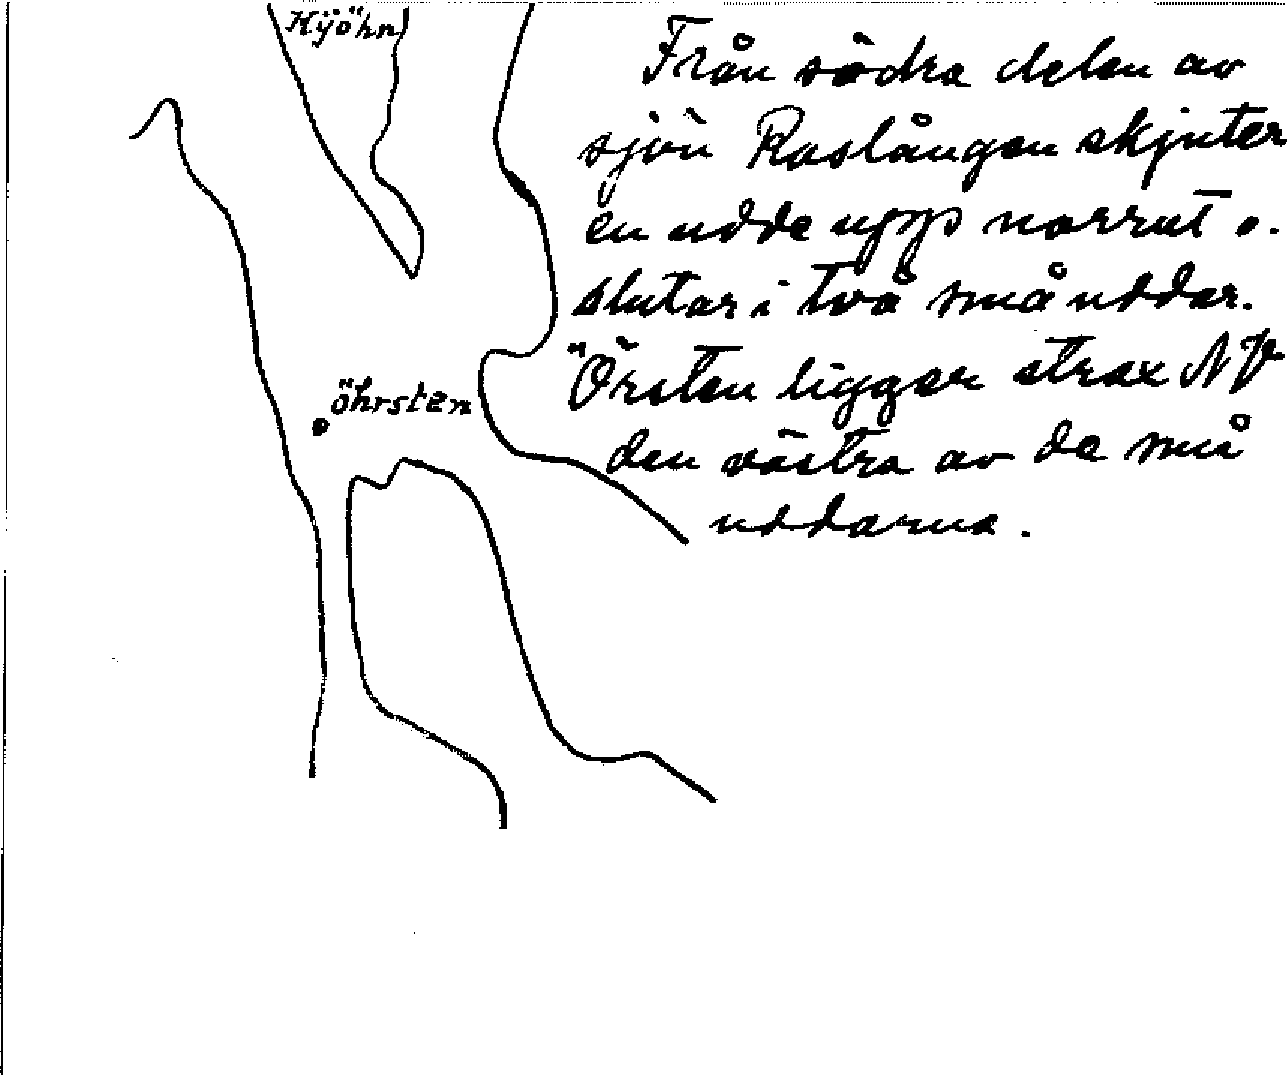 Kÿöhn
Från södra delen av
sjön Raslången skjuter
en udde upp norrut o.
slutar i två små uddar.
Örsten ligger strax NV
öhrsten
den västra av de små
uddarna.